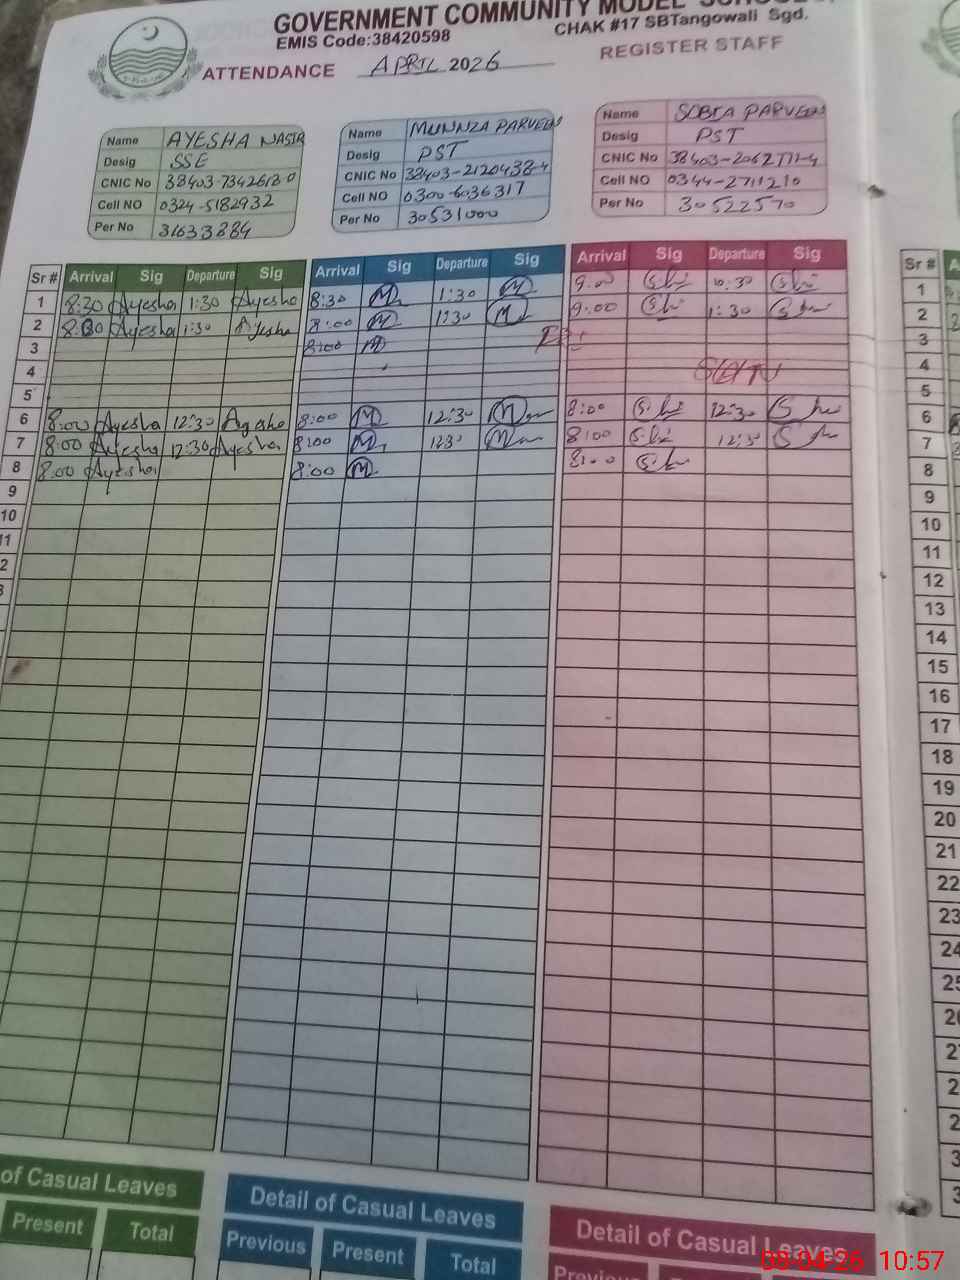 GOVERNMENT COMMUNITY MODEL SCHOOL
EMIS Code:38420598 CHAK #17 SBTangowali Sgd.
ATTENDANCE APRIL 2026 REGISTER STAFF
Name AYESHA NASIR
Desig SSE
CNIC No
Cell NO 0324-5182932
Per No 31633884
Name MUNNZA PARVEEN
Desig PST
CNIC No 38403-2120438-4
Cell NO 0300-6036317
Per No 30531000
Name SOBIA PARVEEN
Desig PST
CNIC No
Cell NO 0344-2711210
Per No 30522570
Sr # Arrival Sig Departure Sig Arrival Sig Departure Sig Arrival Sig Departure Sig Sr #
1 8:30 Ayesha 1:30 Ayesha 8:30 M 1:30 M 9:00 10:30 1
2 Ayesha 1:30 Ayesha 8:00 M 1:30 M 9:00 1:30 2
3 8:00 M 3
4 SUN 4
5 5
6 8:00 Ayesha 12:30 Ayesha 8:00 M 12:30 8:00 12:30 6
7 8:00 Ayesha 12:30 Ayesha 8:00 M 12:30 8:00 12:30 7
8 8:00 Ayesha 8:00 M 8:00 8
9 9
10 10
11 11
2 12
13
14
15
16
17
18
19
20
21
22
23
24
25
26
2
2
2
3
3
of Casual Leaves Detail of Casual Leaves Detail of Casual Leaves
Present Total Previous Present Total Previous
08-04-26 10:57